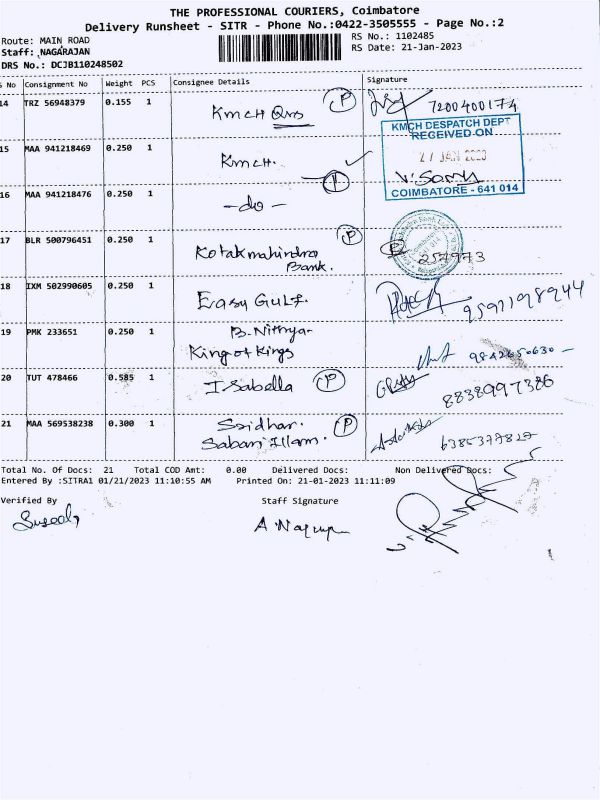 THE PROFESSIONAL COURIERS, Coimbatore
Delivery Runsheet - SITR - Phone No.:0422-3505555 - Page No.:2
Route: MAIN ROAD
RS No.: 1102485
Staff: NAGARAJAN
RS Date: 21-Jan-2023
DRS No.: DCJB110248502
S No Consignment No Weight PCS Consignee Details Signature
14 TRZ 56948379 0.155 1 KMCH P 7200400174
15 MAA 941218469 0.250 1 KMCH.
KMCH DESPATCH DEPT
RECEIVED ON
27 JAN 2023
COIMBATORE - 641 014
16 MAA 941218476 0.250 1 -do-
17 BLR 500796451 0.250 1 Kotak mahindra P
Bank. 257973
18 IXM 502990605 0.250 1 Easy Gulf. 9597198944
19 PMK 233651 0.250 1 B. Nithya-
King of Kings 9842650630 -
20 TUT 478466 0.585 1 Isabella P 8838997386
21 MAA 569538238 0.300 1 Sridhar. P
Sabari Illam. 6385377827
Total No. Of Docs: 21 Total COD Amt: 0.00 Delivered Docs: Non Delivered Docs:
Entered By :SITRA1 01/21/2023 11:10:55 AM Printed On: 21-01-2023 11:11:09
Verified By Staff Signature